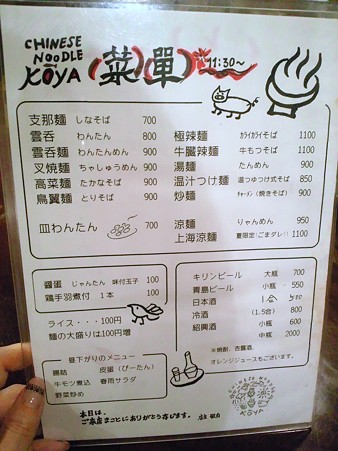 CHINESE
NOODLE
KOYA
菜單
11:30～
支那麺 しなそば 700
雲呑 わんたん 800
雲呑麺 わんたんめん 900
叉焼麺 ちゃしゅうめん 900
高菜麺 たかなそば 900
鳥翼麺 とりそば 900
皿わんたん 700
極辣麺 カライカライそば 1100
牛臓麻麺 牛もつそば 1100
湯麺 たんめん 900
温汁つけ麺 温つゆつけ式そば 850
炒麺 チャーメン(焼きそば) 900
涼麺 りゃんめん 950
上海涼麺 夏限定!ごまダレ!! 1100
醤蛋 じゃんたん 味付玉子 100
鶏手羽煮付 1本 100
ライス・・・100円
麺の大盛りは100円増
昼下がりのメニュー
腸詰 皮蛋(ぴーたん)
牛モツ煮込 春雨サラダ
野菜炒め
キリンビール 大瓶 700
青島ビール 小瓶 550
日本酒 1合 500
冷酒 (1.5合) 800
紹興酒 小瓶 600
中瓶 2000
※焼酎、杏露酒、
オレンジジュースもございます。
CHINESE NOODLE
KOYA
本日は、
ご来店まことにありがとう存じます。
店主